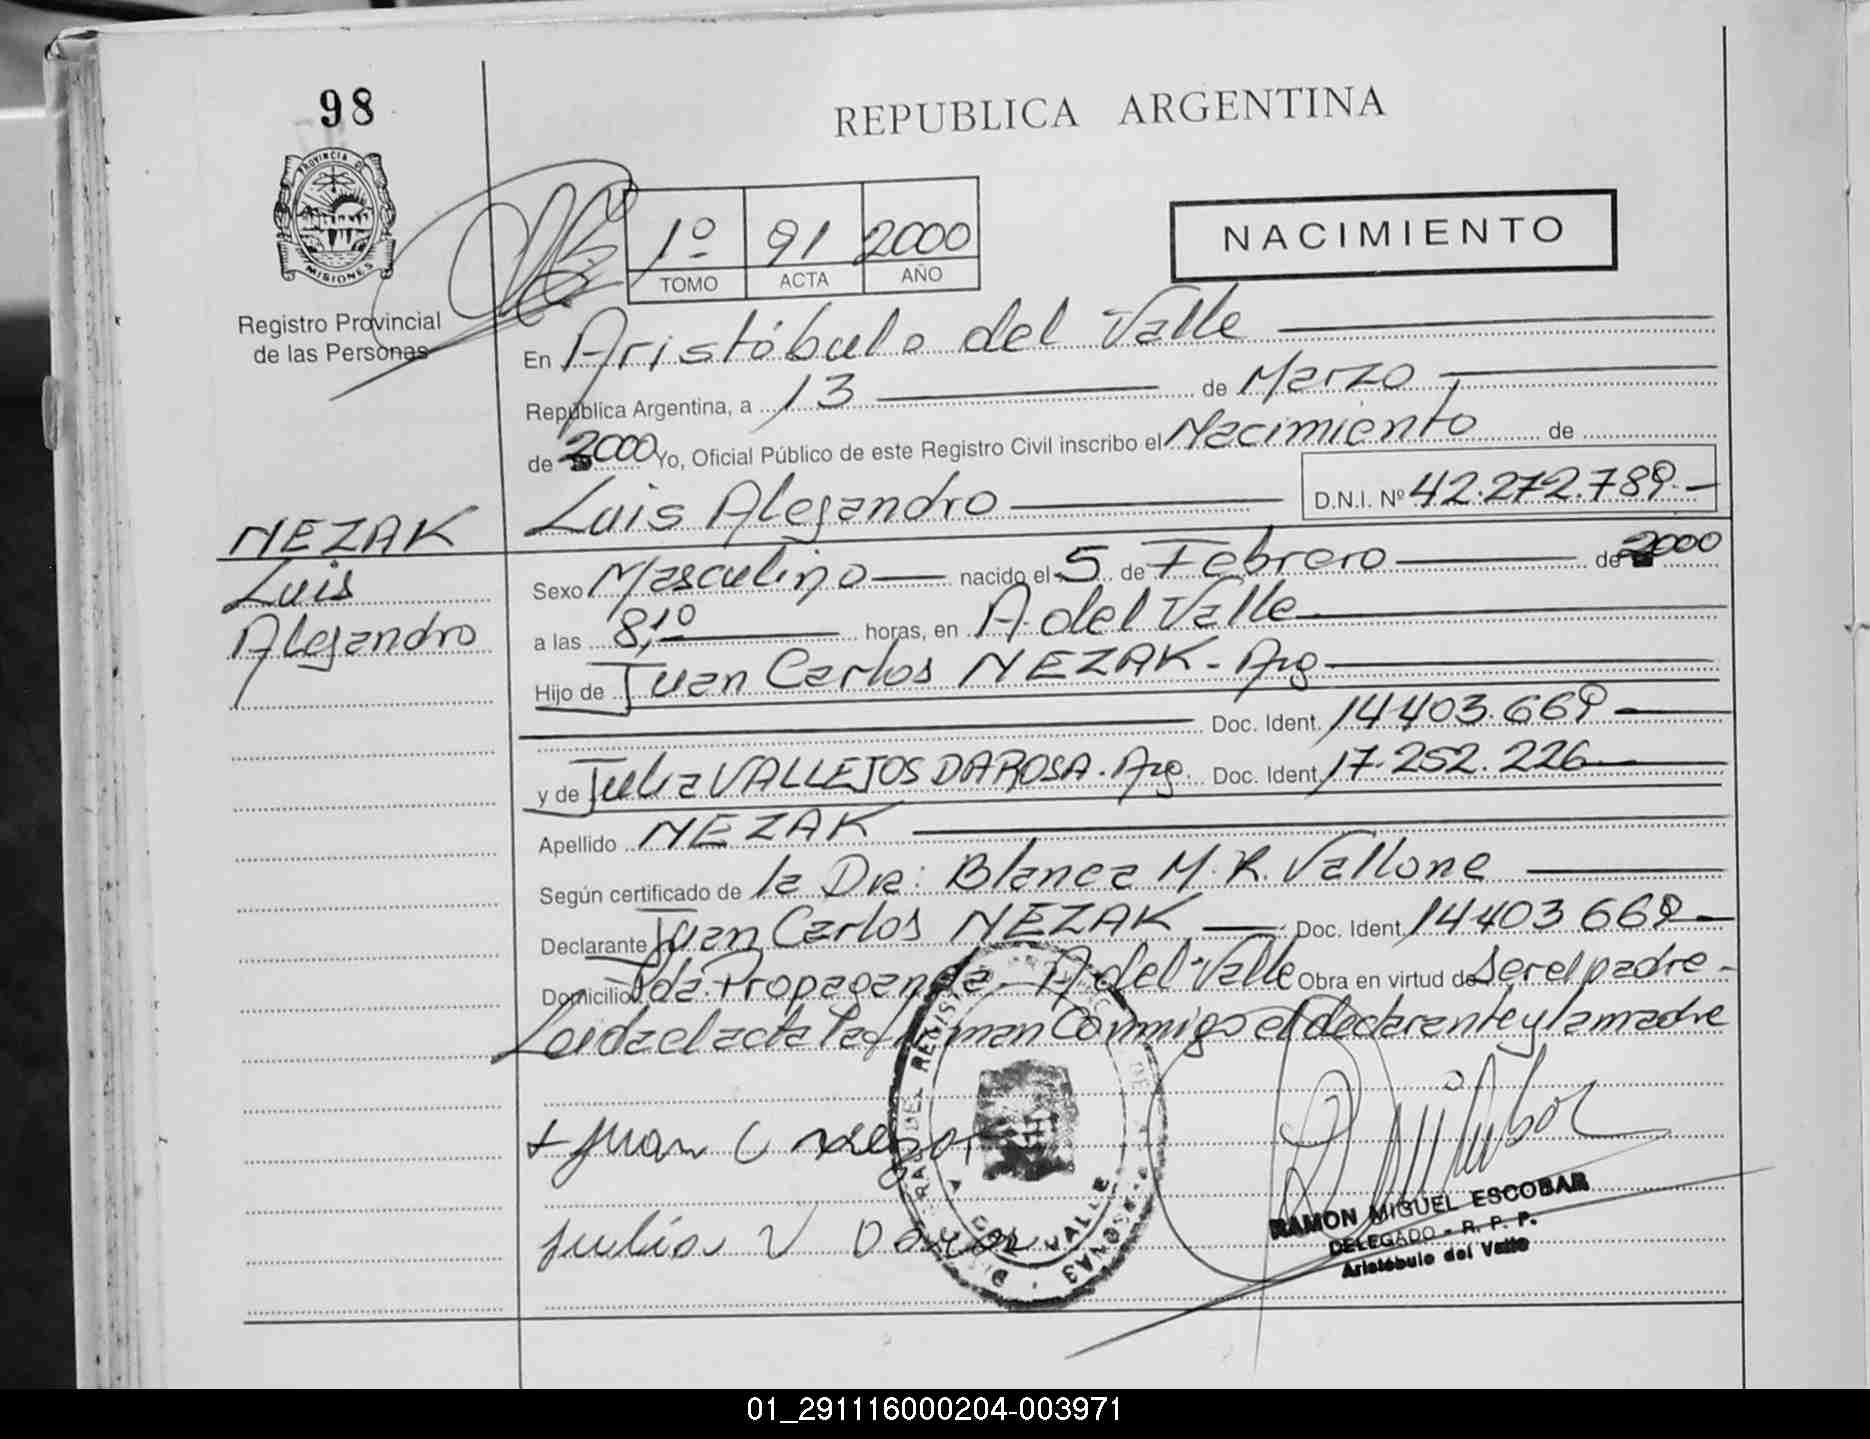 98
REPUBLICA ARGENTINA
PROVINCIA DE
MISIONES
1º 91 2000
TOMO ACTA AÑO
NACIMIENTO
Registro Provincial
de las Personas
En Aristóbulo del Valle
República Argentina, a 13 de Marzo
de 2000 Yo, Oficial Público de este Registro Civil inscribo el Nacimiento de
Luis Alejandro D.N.I. Nº 42.272.789.-
NEZAK
Luis
Alejandro
Sexo Masculino nacido el 5 de Febrero de 2000
a las 8,10 horas, en A. del Valle
Hijo de Juan Carlos NEZAK - Arg
Doc. Ident. 14.403.669
y de Julia VALLEJOS DAROSA. Arg. Doc. Ident. 17.252.226
Apellido NEZAK
Según certificado de la Dra: Blanca M. R. Vallone
Declarante Juan Carlos NEZAK Doc. Ident. 14403669
Domicilio Pda. Propaganda - A del Valle Obra en virtud de Ser el padre -
Leida el acta la firman Conmigo el declarante y la madre
RAMON MIGUEL ESCOBAR
DELEGADO - R. P. P.
Aristóbulo del Valle
01_291116000204-003971